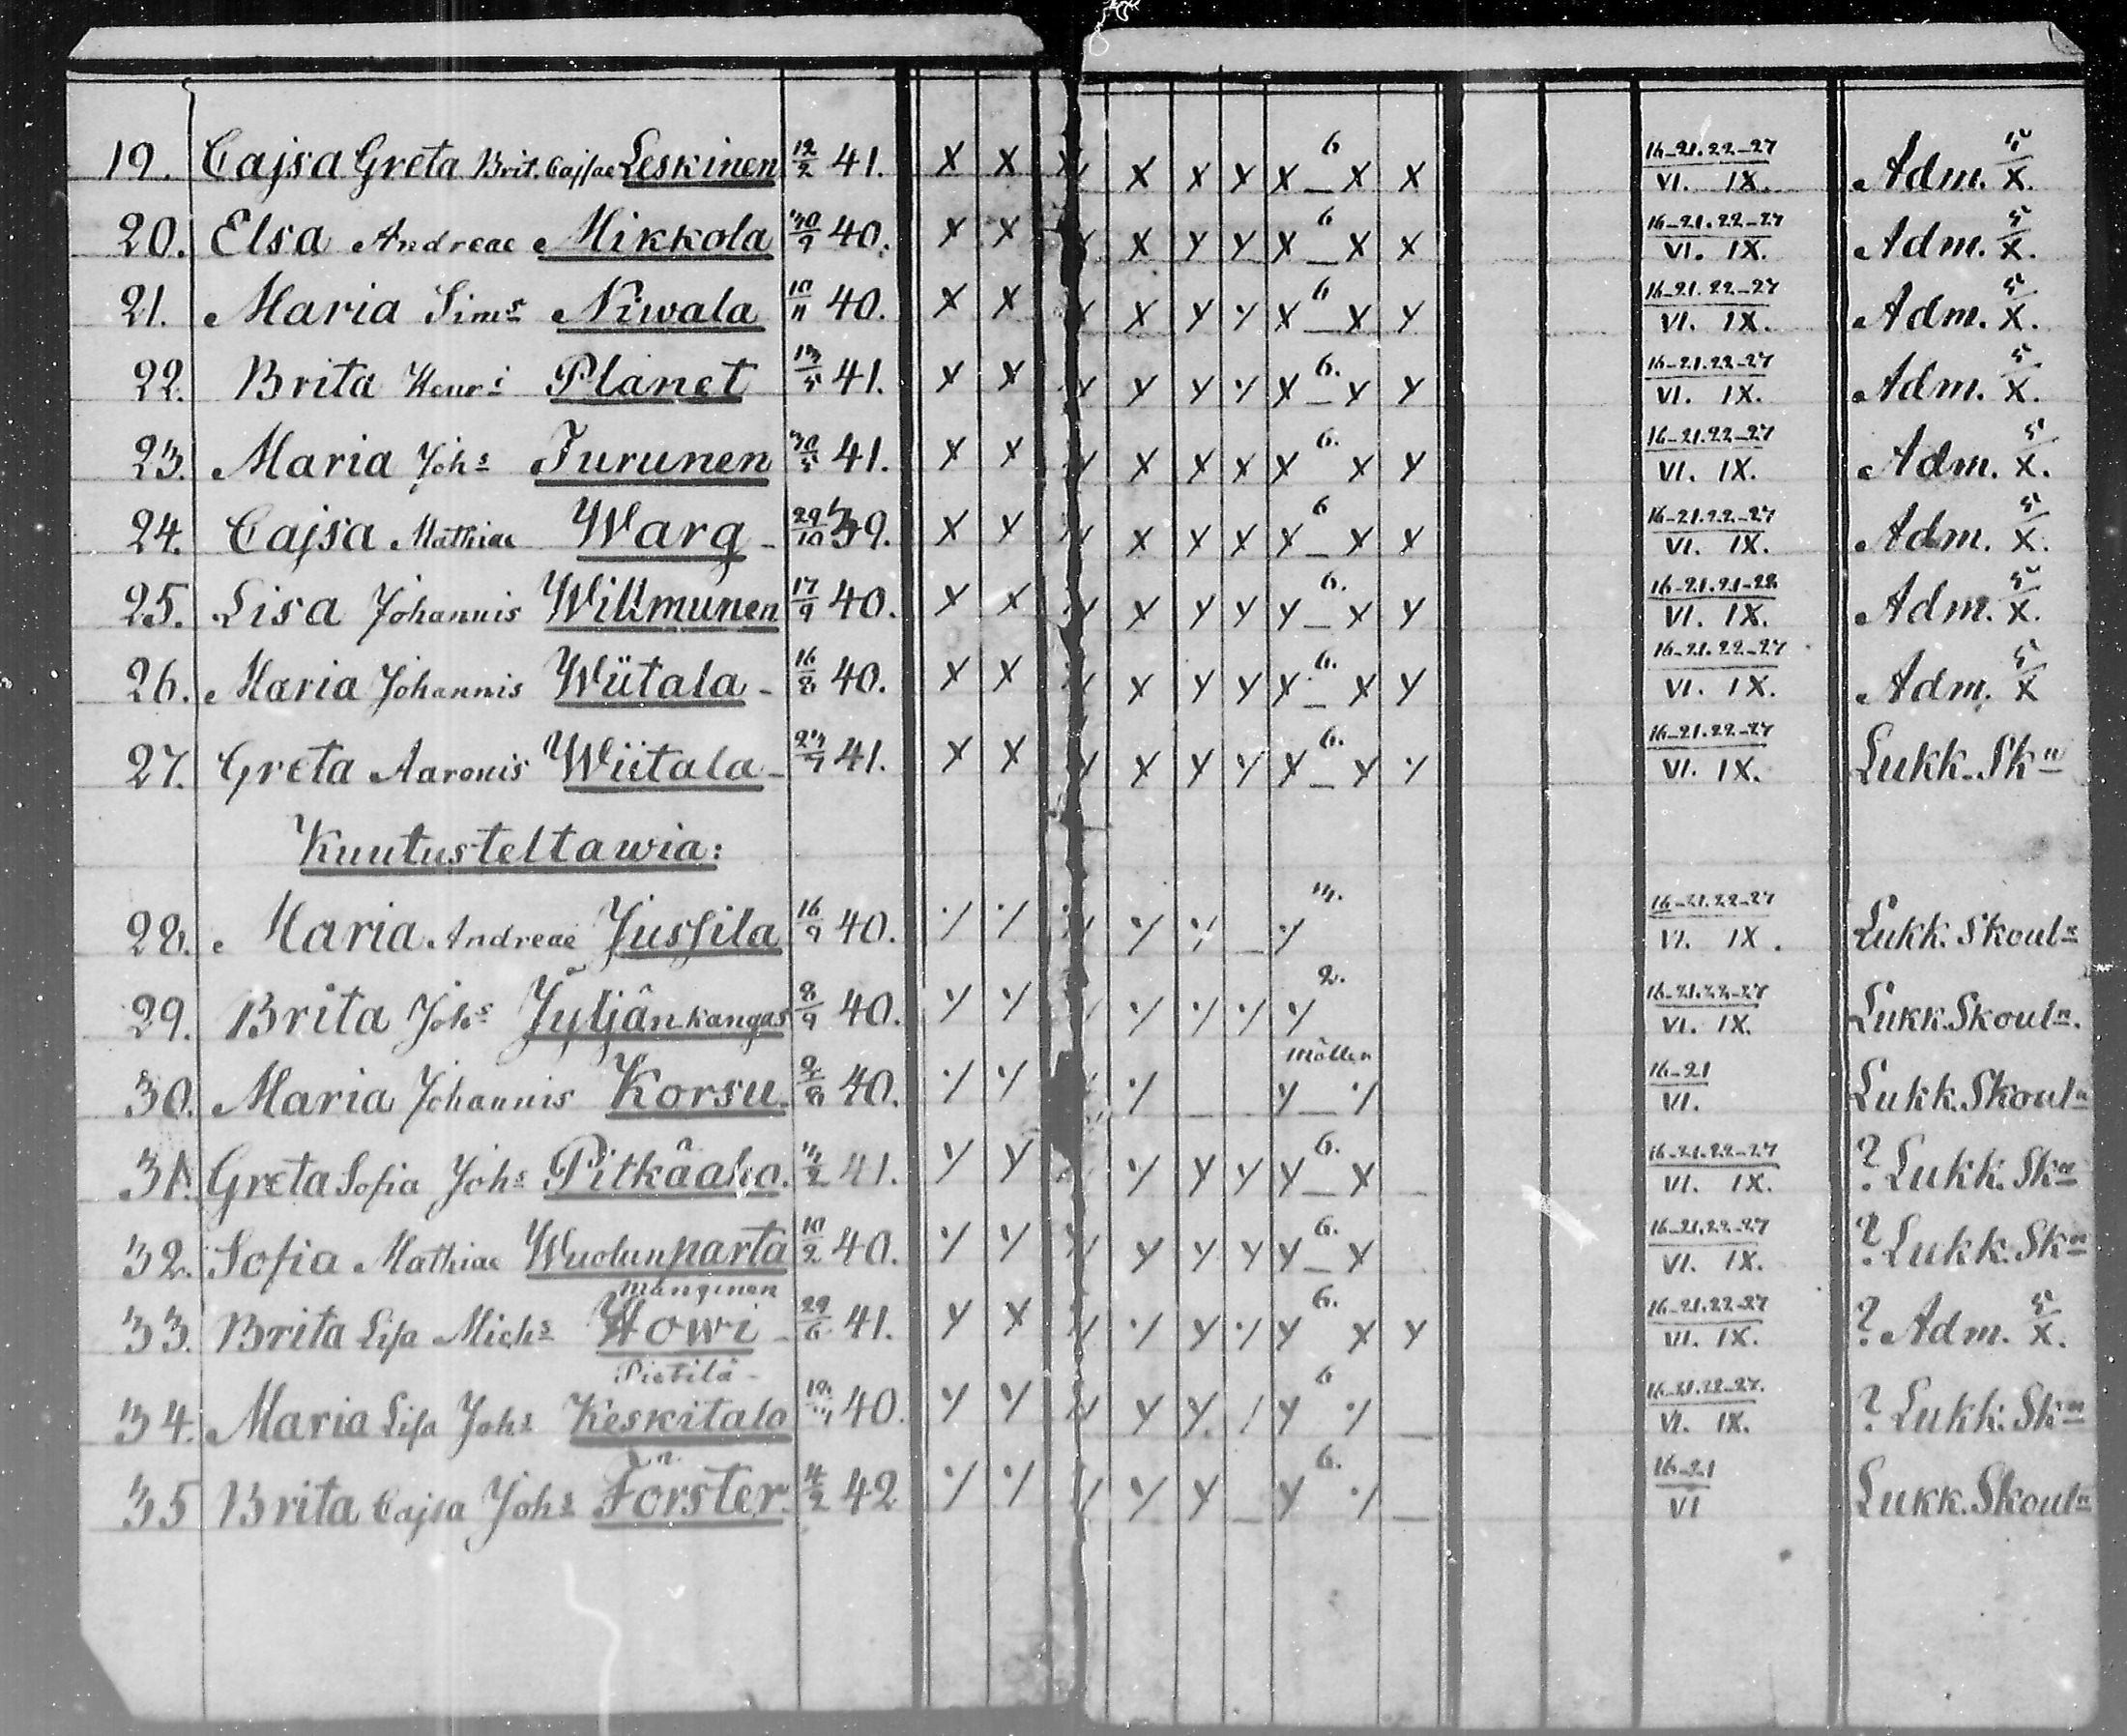 19. Cajsa Greta Brit. Cajsae Leskinen 12/2 41. X X X X X X X 6 _ X X 16-21. 22-27 VI. IX. Adm. 5/X.
20. Elsa Andreae Mikkola 30/9 40. X X X y y X 6 _ X X 16-21. 22-27 VI. IX. Adm. 5/X.
21. Maria Sims Niwala 10/11 40. X X X y y X 6 _ X y 16-21. 22-27 VI. IX. Adm. 5/X.
22. Brita Henri Planet 13/5 41. X X y y y X 6. _ y y 16-21. 22-27 VI. IX. Adm. 5/X.
23. Maria Johs Turunen 30/5 41. X X X X X X 6. X y 16-21. 22-27 VI. IX. Adm. 5/X.
24. Cajsa Mathiae Warg 29/10 39. X X X X X X 6 _ X X 16-21. 22-27 VI. IX. Adm. 5/X.
25. Lisa Johannis Willmunen 17/9 40. X X X y y y 6. _ X y 16-21. 21-28 VI. IX. Adm. 5/X.
26. Maria Johannis Wiitala 16/8 40. X X X y y X 6. _ X y 16-21. 22-27 VI. IX. Adm. 5/X
27. Greta Aaronis Wiitala 41. X X X y y X 6. _ y y 16-21. 22-27 VI. IX. Lukk. Skn
Kuutusteltawia:
28. Maria Andreae Jussila 16/9 40. 16-21. 22-27 VI. IX. Lukk. Skouln
29. Brita Johs Jyljänkangas 8/9 40. 2. 16-21. 22-27 VI. IX. Lukk. Skouln.
30. Maria Johannis Korsu 40. 16-21 VI. Lukk. Skouln
31. Greta Sofia Johs Pitkäaho. 3/2 41. 6. 16-21. 22-27 VI. IX. ? Lukk. Skn
32. Sofia Mathiae Wuolunparta 10/2 40. 6. 16-21. 22-27 VI. IX. ? Lukk. Skn
Mänginen
33. Brita Lisa Michs Howi 29/6 41. 6. 16-21. 22-27 VI. IX. ? Adm. 5/X.
Pietilä
34. Maria Lisa Johs Keskitalo 40. 6 16-21. 22-27. VI. IX. ? Lukk. Skn
35 Brita Cajsa Johs Förster 4/2 42 6. 16-21 VI Lukk. Skouln